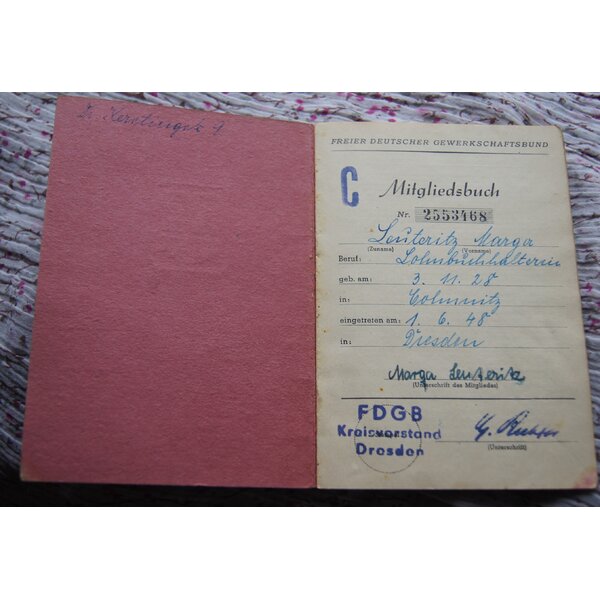 FREIER DEUTSCHER GEWERKSCHAFTSBUND
C
Mitgliedsbuch
Nr. 2553468
Leuteritz Marga
(Zuname) (Vorname)
Beruf: Lohnbuchhalterin
geb. am: 3. 11. 28
in: Colmnitz
eingetreten am: 1. 6. 48
in: Dresden
Marga Leuteritz
(Unterschrift des Mitgliedes)
FDGB
Kreisvorstand
Dresden
(Unterschrift)